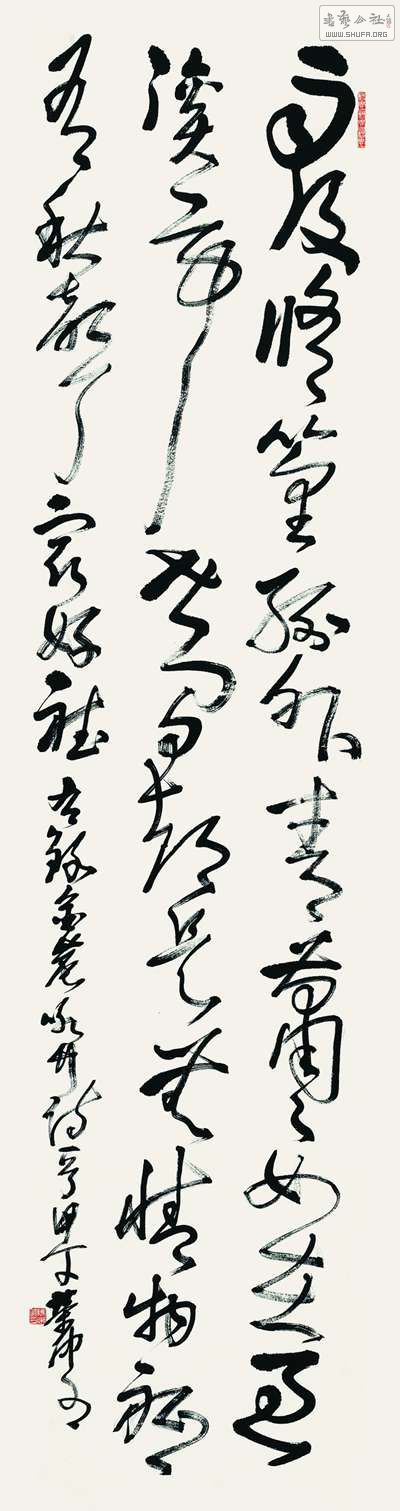 雨後修篁分外青蕭蕭如在過
溪亭世間都是無情物祇
有秋聲最好聽 右錄金農咏竹詩
WWW.SHUFA.ORG